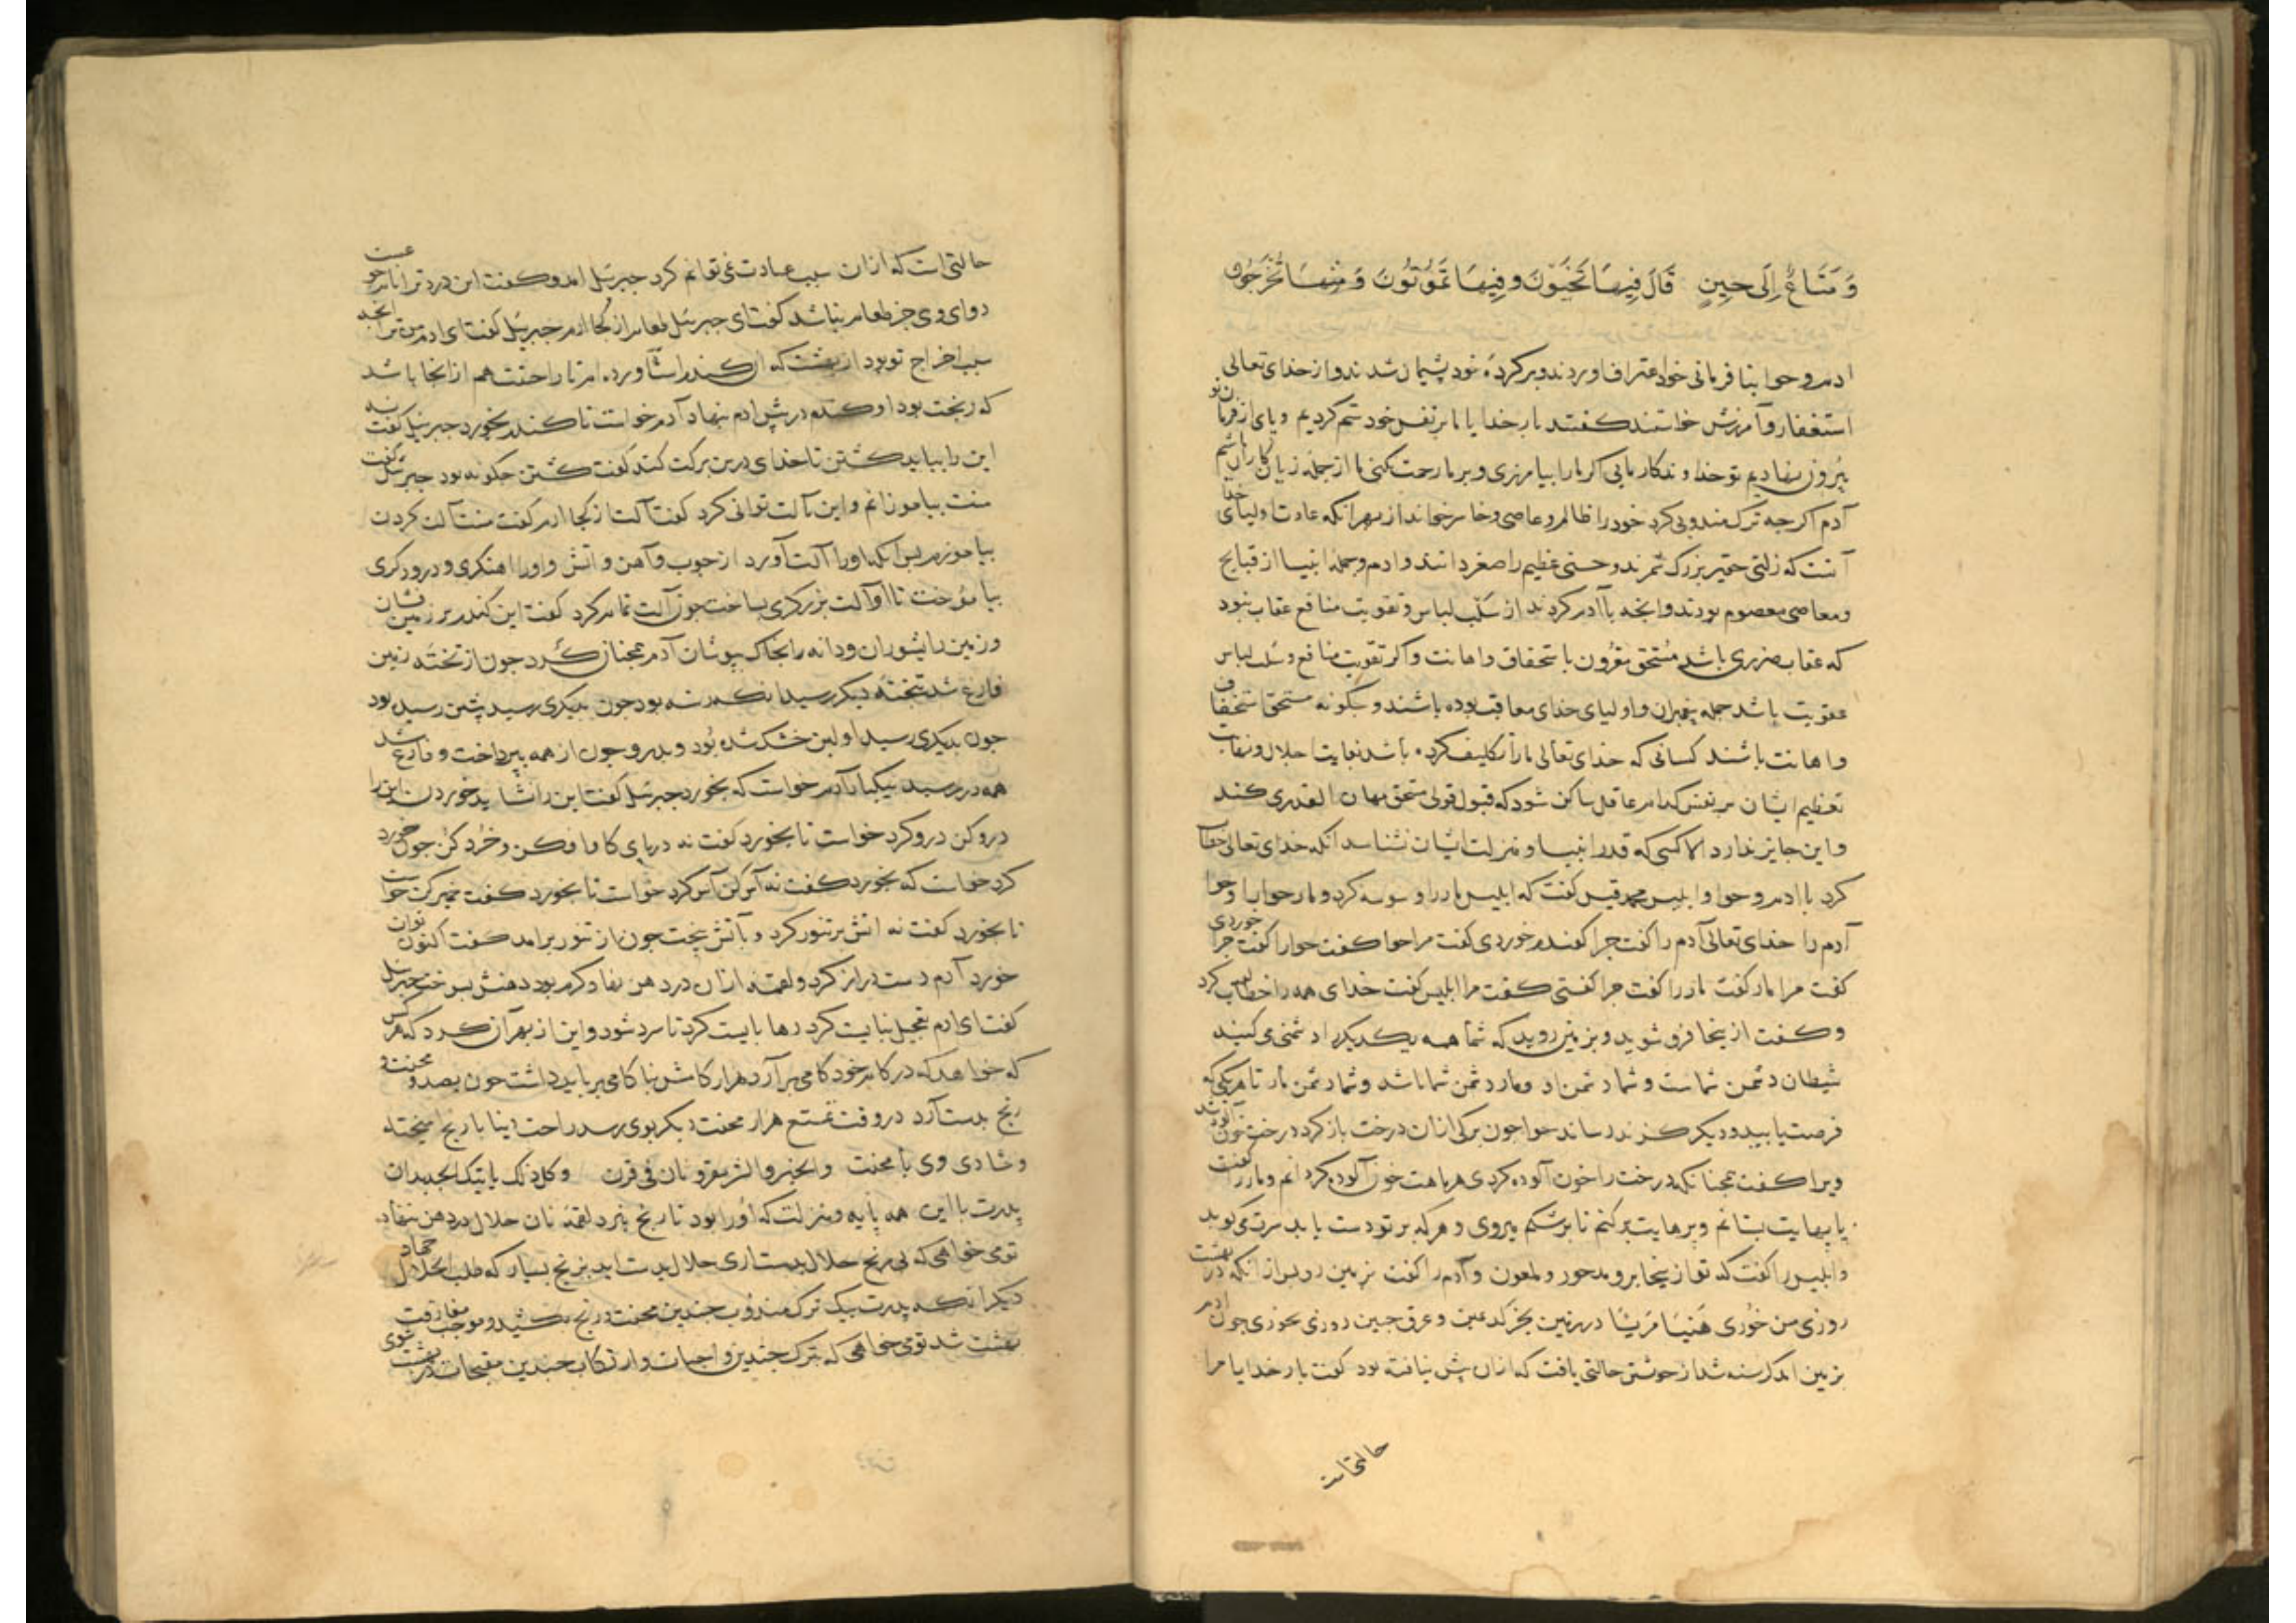 وَ مَتَاعٌ إِلَى حِينٍ قَالَ فِيهَا تَحْيَوْنَ وَ فِيهَا تَمُوتُونَ وَ مِنْهَا تُخْرَجُونَ
ادم و حوا بنا فرمانی خود اعتراف اوردند و بر کردهٔ خود پشیمان شدند و از خدای تعالی
استغفار و آمرزش خواستند کفتند بار خدایا ما بر نفس خود ستم کردیم و پای از فرمان تو
بیرون نهادیم تو خداوندکار مایی اکر ما را بیامرزی و بر ما رحمت نکنی ما از جمله زیان کاران باشیم
آدم اکرجه ترک مندوبی کرد خود را ظالم و عاصی و خاسر خواند از بهر آنکه عادت اولیای خدا
آنست که زلتی حقیر بزرک شمرند و حسنی عظیم را صغر دانند و ادم و جمله انبیا از قبایح
و معاصی معصوم بودند و انجه با آدم کردند از سلب لباس و تفویت منافع عقاب نبود
که عقاب ضرری باشد مستحق مقرون باستخفاف و اهانت و اکر تفویت منافع و سلب لباس
عقوبت باشد جمله پیغمبران و اولیای خدای معاقب بوده باشند و جکونه مستحق استخفاف
و اهانت باشند کسانی که خدای تعالی ما را تکلیف کرده باشد بغایت اجلال و نهایت
تعظیم ایشان بر نفس کدام عاقل ساکن شود که قبول قولی مستحق مهان القدری کند
و این جایز ندارد الا کسی که قدر انبیا و منزلت ایشان نشناسد انکه خدای تعالی خطاب
کرد با ادم و حوا و ابلیس محمد قیس کفت که ابلیس مار را وسوسه کرد و مار حوا را و حوا
آدم را خدای تعالی آدم را کفت جرا کندم خوردی کفت مرا حوا کفت حوا را کفت جرا خوردی
کفت مرا مار کفت مار را کفت جرا کفتی کفت مرا ابلیس کفت خدای همه را خطاب کرد
و کفت از ینجا فرو شوید و بزمین روید که شما همه یکدیکر را دشمنی می کنید
شیطان دشمن شماست و شما دشمن او و مار دشمن شما باشد و شما دشمن مار تا هر یکی که
فرصت یابید و دیکر کزند رساند حوا جون برکی از ان درخت باز کرد درخت خون آلود شد
ویرا کفت همجنانکه درخت را خون آلوده کردی هر ماهت خون آلوده کردانم و مار را کفت
پایهایت بستانم و پرهایت برکنم تا بر شکم میروی و هر که بر تو دست یابد سرت می کوبد
و ابلیس را کفت که تو از ینجا برو مدحور و ملعون و آدم را کفت بزمین رو پس از انکه در بهشت
روزی من خوردی هَنیئا مَریئا در زمین بجز کد یمین و عرق جبین روزی نخوری جون ادم
بزمین امد کرسنه شد از خویشتن حالتی یافت که از ان پیش نیافته بود کفت بار خدایا مرا
حالتی است
حالتی است که از ان سبب عبادت نمی توانم کرد جبرئیل امد و کفت این درد ترا
دوای وی جز طعام نباشد کفت ای جبرئیل طعام از کجا ارم جبرئیل کفت ای ادم من ترا انجه
سبب اخراج تو بود از بهشت که ان کندم است آورده ام تا راحتت هم از انجا باشد
که رنجت بود او کندم در پیش ادم بنهاد آدم خواست تا کندم بخورد جبرئیل کفت نه
این را بباید کشتن تا خدای درین برکت کند کفت کشتن جکونه بود جبرئیل کفت
منت بیاموزانم و این بآلت توانی کرد کفت آلت از کجا ارم کفت منت آلت کردن
بیاموزم پس انکه او را آلت آورد از جوب و آهن و آتش و او را اهنکری و درودکری
بیاموخت تا او آلت بزرکری بساخت جون آلت تمام کرد کفت این کندم بر زمین فشان
و زمین را بشوران و دانه را بخاک بپوشان آدم همجنان کرد جون از تختهٔ زمین
فارغ شد بتختهٔ دیکر رسید بود جون بدیکری رسید پیشین رسیده بود
جون بدیکری رسید اولین خشک شده بود و بدرو جون از همه بپرداخت و فارغ شد
همه در رسید بیکبار آدم خواست که بخورد جبرئیل کفت این را نشاید خوردن این را
درو کن درو کرد خواست تا بخورد کفت نه در پای کاو افکن و خرد کن جون خورد
کرد خواست که بخورد کفت نه آس کن آس کرد خواست تا بخورد کفت خمیر کن خواست
تا بخورد کفت نه اتش بر تنور کرد و بآتش بپخت جون نان از تنور برامد کفت اکنون توان
خورد آدم دست دراز کرد و لقمه از ان در دهن نهاد کرم بود دهنش بسوخت جبرئیل
کفت ای ادم تعجیل نبایست کرد رها بایست کرد تا سرد شود و این از بهر آن کرد که هر کس
که خواهد که در کام خود کامی برآرد هزار کامش بناکامی برباید داشت جون بصد محنت و
رنج بدست آرد در وقت تمتع هزار محنت دیکر بوی رسد راحت دنیا با رنج آمیخته
و شادی وی با محنت و الخیر و الشر مقرونان فی قرن و کل ذلک یاتیک الجدیدان
پدرت با این همه پایه و منزلت که او را بود تا رنج نبرد لقمهٔ نان حلال در دهن ننهاد
تو می خواهی که بی رنج حلال بدست اری حلال بدست اید برنج بسیار که طلب الحلال جهاد
دیکر انکه پدرت بیک ترک مندوب جندین محنت و رنج بکشید و موجب مفارقت
بهشت شد تو می خواهی که بترک جندین واجبات و ارتکاب جندین مقبحات در بهشت شوی